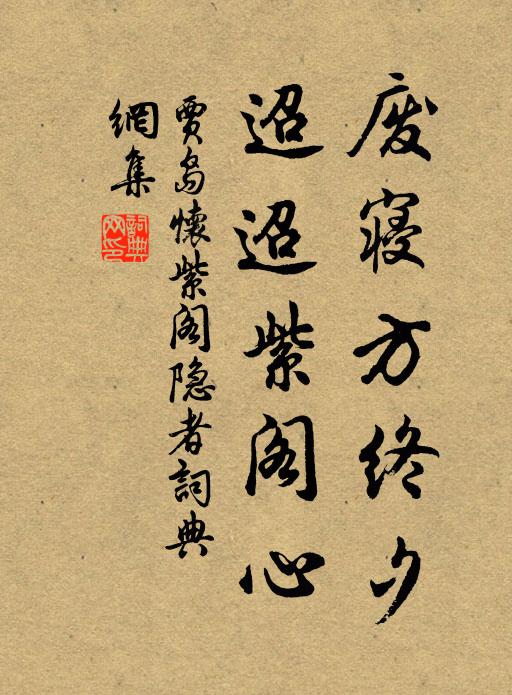 废寝方终夕
迢迢紫阁心
贾岛懷紫阁隐者詞典
網集
詞典
网印